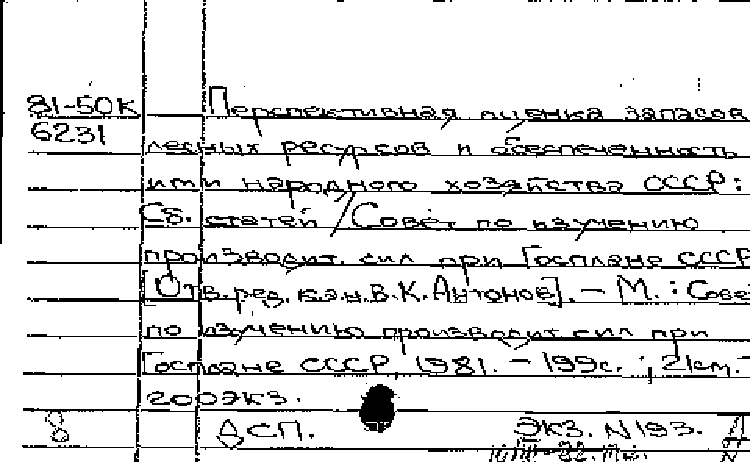 81-50К Перспективная оценка запасов
6231
лесных ресурсов и обеспеченность
ими народного хозяйства СССР:
Сб. статей / Совет по изучению
производит. сил при Госплане СССР
[Отв. ред. к.э.н. В.К. Антонов]. — М.: Сове
по изучению производит. сил при
Госплане СССР, 1981. — 199с.; 21см. —
200экз.
8 ДСП. Экз. N 193. Д